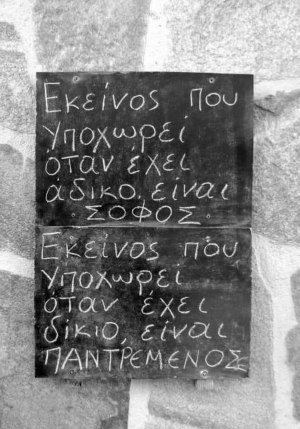 Εκείνος που
υποχωρεί
όταν έχει
άδικο, είναι
· ΣΟΦΟΣ ·
Εκείνος που
υποχωρεί
όταν έχει
δίκιο, είναι
ΠΑΝΤΡΕΜΕΝΟΣ